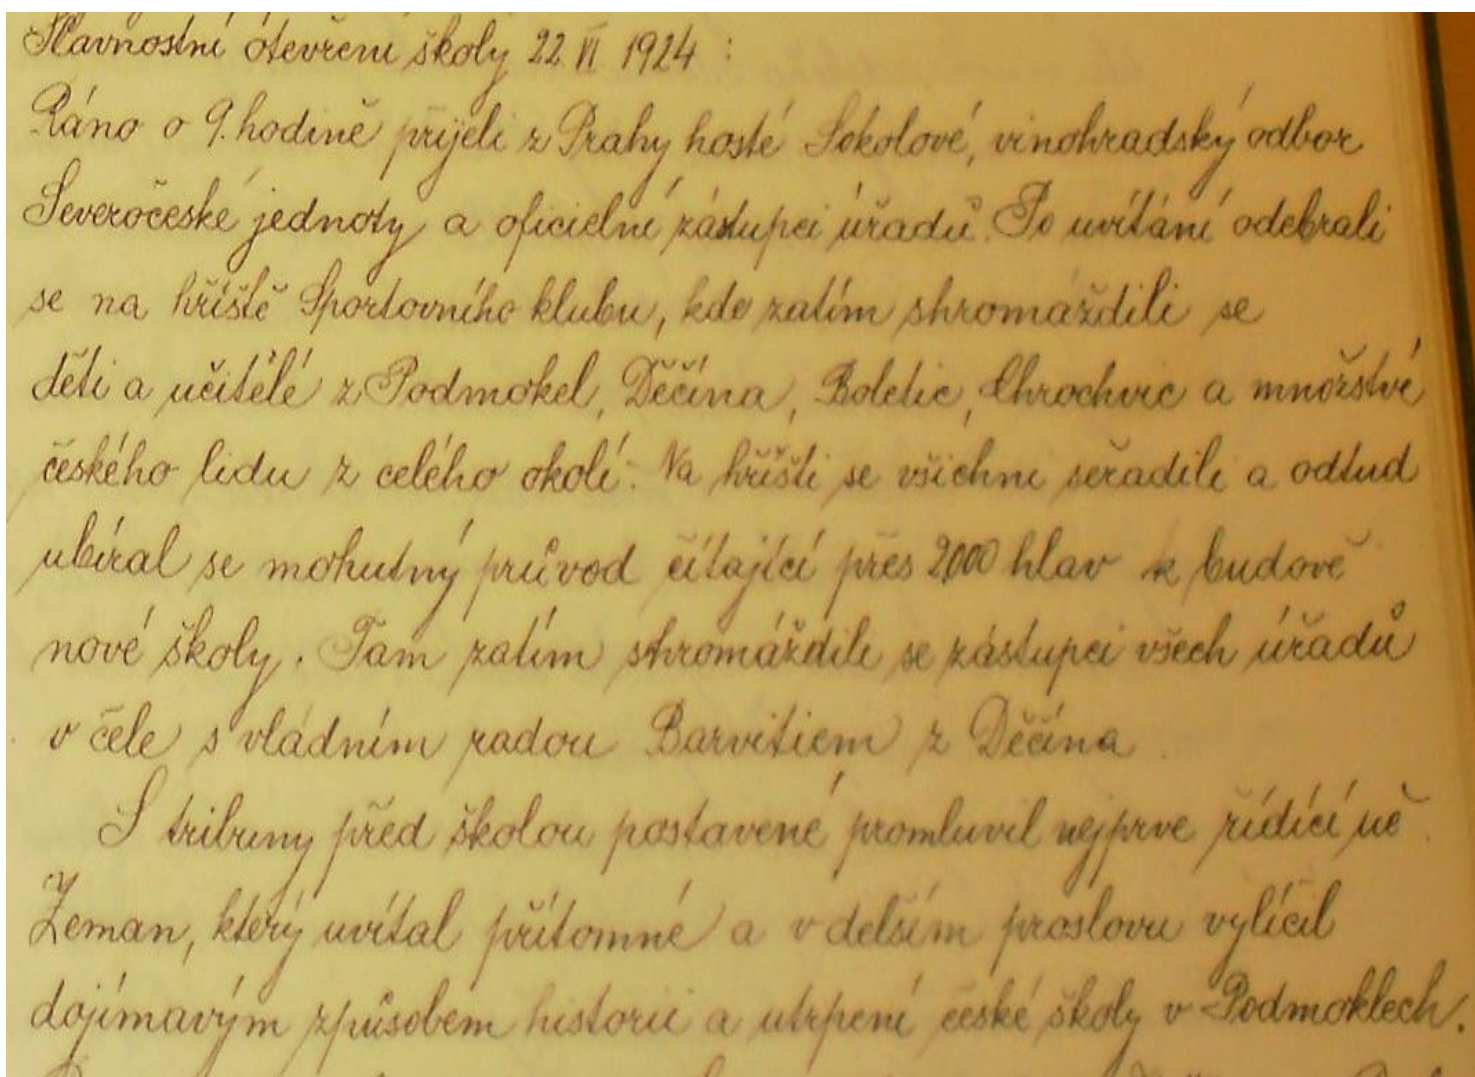 Slavnostní otevření školy 22 VI 1924 :
Ráno o 9. hodině přijeli z Prahy hosté Sokolové, vinohradský odbor
Severočeské jednoty a oficielní zástupci úřadů. Po uvítání odebrali
se na hřiště Sportovního klubu, kde zatím shromáždili se
děti a učitělé z Podmokel, Děčína, Boletic, Chrochvic a množství
českého lidu z celého okolí. Na hřišti se všichni seřadili a odtud
ubíral se mohutný průvod čítající přes 2000 hlav k budově
nové školy. Tam zatím shromáždili se zástupci všech úřadů
v čele s vládním radou Barvitiem z Děčína
S tribuny před školou postavené promluvil nejprve řídící uč.
Zeman, který uvítal přítomné a v delším proslovu vylíčil
dojímavým způsobem historii a utrpení české školy v Podmoklech.